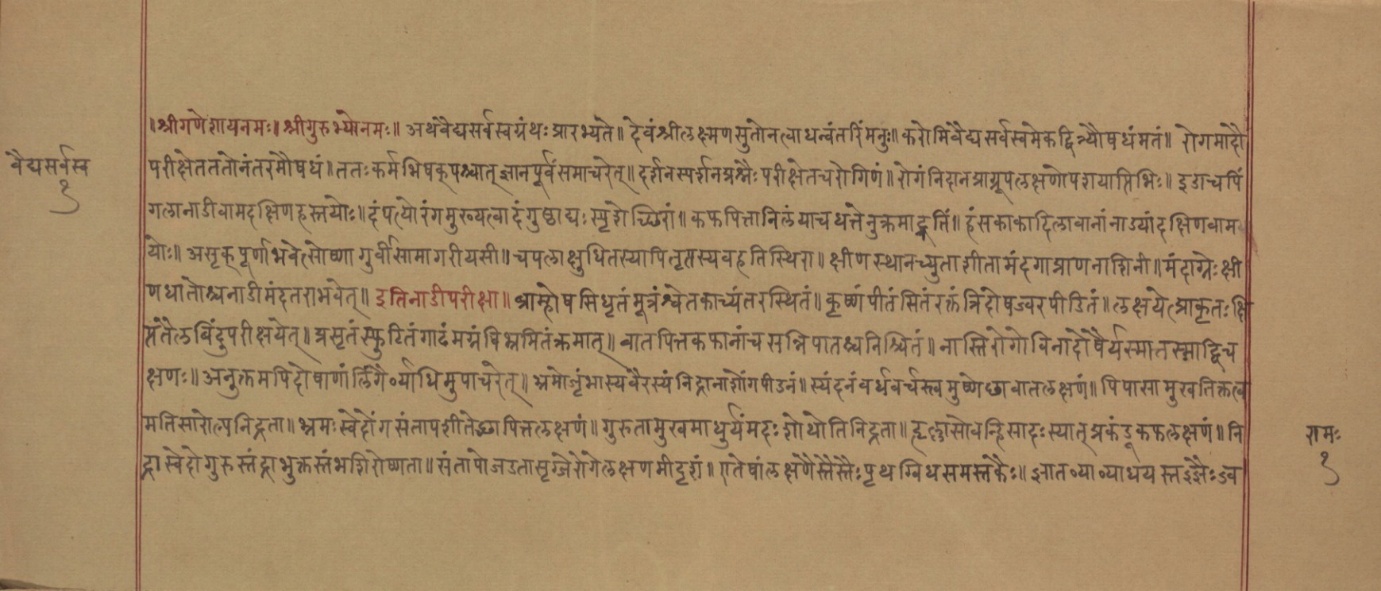 ॥श्रीगणेशायनमः॥ श्रीगुरुभ्योनमः॥ अथवैद्यसर्वस्वग्रंथः प्रारभ्यते॥ देवंश्रीलक्ष्मणसुतोनत्वाधन्वंतरिंमनुः॥ करोमिवैद्यसर्वस्वमेकद्वित्र्यौषधंमतं॥ रोगमादौ
वैद्यसर्वस्व
१
परीक्षेतततोनंतरमौषधं॥ ततः कर्मभिषक्पश्चात् ज्ञानपूर्वंसमाचरेत्॥ दर्शनस्पर्शनप्रश्नैः परीक्षेतचरोगिणं॥ रोगंनिदानप्राग्रूपलक्षणोपशयाप्तिभिः॥ इडाचपिं
गलानाडीवामदक्षिणहस्तयोः॥ दंपत्योरंगमुख्यत्वादंगुष्ठाद्यः स्पृशेच्छिरां॥ कफपित्तानिलंयाचधत्तेनुक्रमाद्गतिं॥ हंसकाकादिलावानांनाड्यांदक्षिणवाम
योः॥ असृक्पूर्णाभवेत्सोष्णागुर्वीसामागरीयसी॥ चपलाक्षुधितस्यापितृप्तस्यवहतिस्थिरा॥ क्षीणस्थानच्युताशीतामंदगाप्राणनाशिनी॥ मंदाग्नेः क्षी
णधातोश्चनाडीमंदतराभवेत्॥ इतिनाडीपरीक्षा॥ ब्राम्होषसिधृतंमूत्रंश्वेतकाच्यंतरस्थितं॥ कृष्णंपीतंसितंरक्तंत्रिदोषज्वरपीडितं॥ लक्षयेत्प्राकृतःक्षि
प्तंतैलबिंदुपरीक्षयेत्॥ प्रसृतंस्फुटितंगाढंमग्नंविभ्रमितंक्रमात्॥ वातपित्तकफानांचसन्निपातश्चनिश्चितं॥ नास्तिरोगोविनादोषैर्यस्मातस्माद्विच
क्षणः॥ अनुक्तमपिदोषाणांलिंगैर्व्याधिमुपाचरेत्॥ भ्रमोजृंभास्यवैरस्यंनिद्रानाशोंगपीडनं॥ स्यंदनंवर्धवर्चस्त्वमुष्णेछावातलक्षणं॥ पिपासामुखतिक्तत्व
मतिसारोल्पनिद्रता॥ भ्रमःस्वेदोंगसंतापशीतेछापित्तलक्षणं॥ गुरुतामुखमाधुर्यंमदःशोथोतिनिद्रता॥ हृल्लासोवन्हिसादःस्यात्प्रकंडूकफलक्षणं॥ नि
द्रास्वेदोगुरुस्तंद्राभुक्तस्तंभशिरोष्णता॥ संतापोजडतासृग्जेरोगेलक्षणमीदृशं॥ एतेषांलक्षणैस्तैस्तैःपृथग्विधसमस्तकैः॥ ज्ञातव्याव्याधयस्तज्ज्ञैःज्व
रामः
१